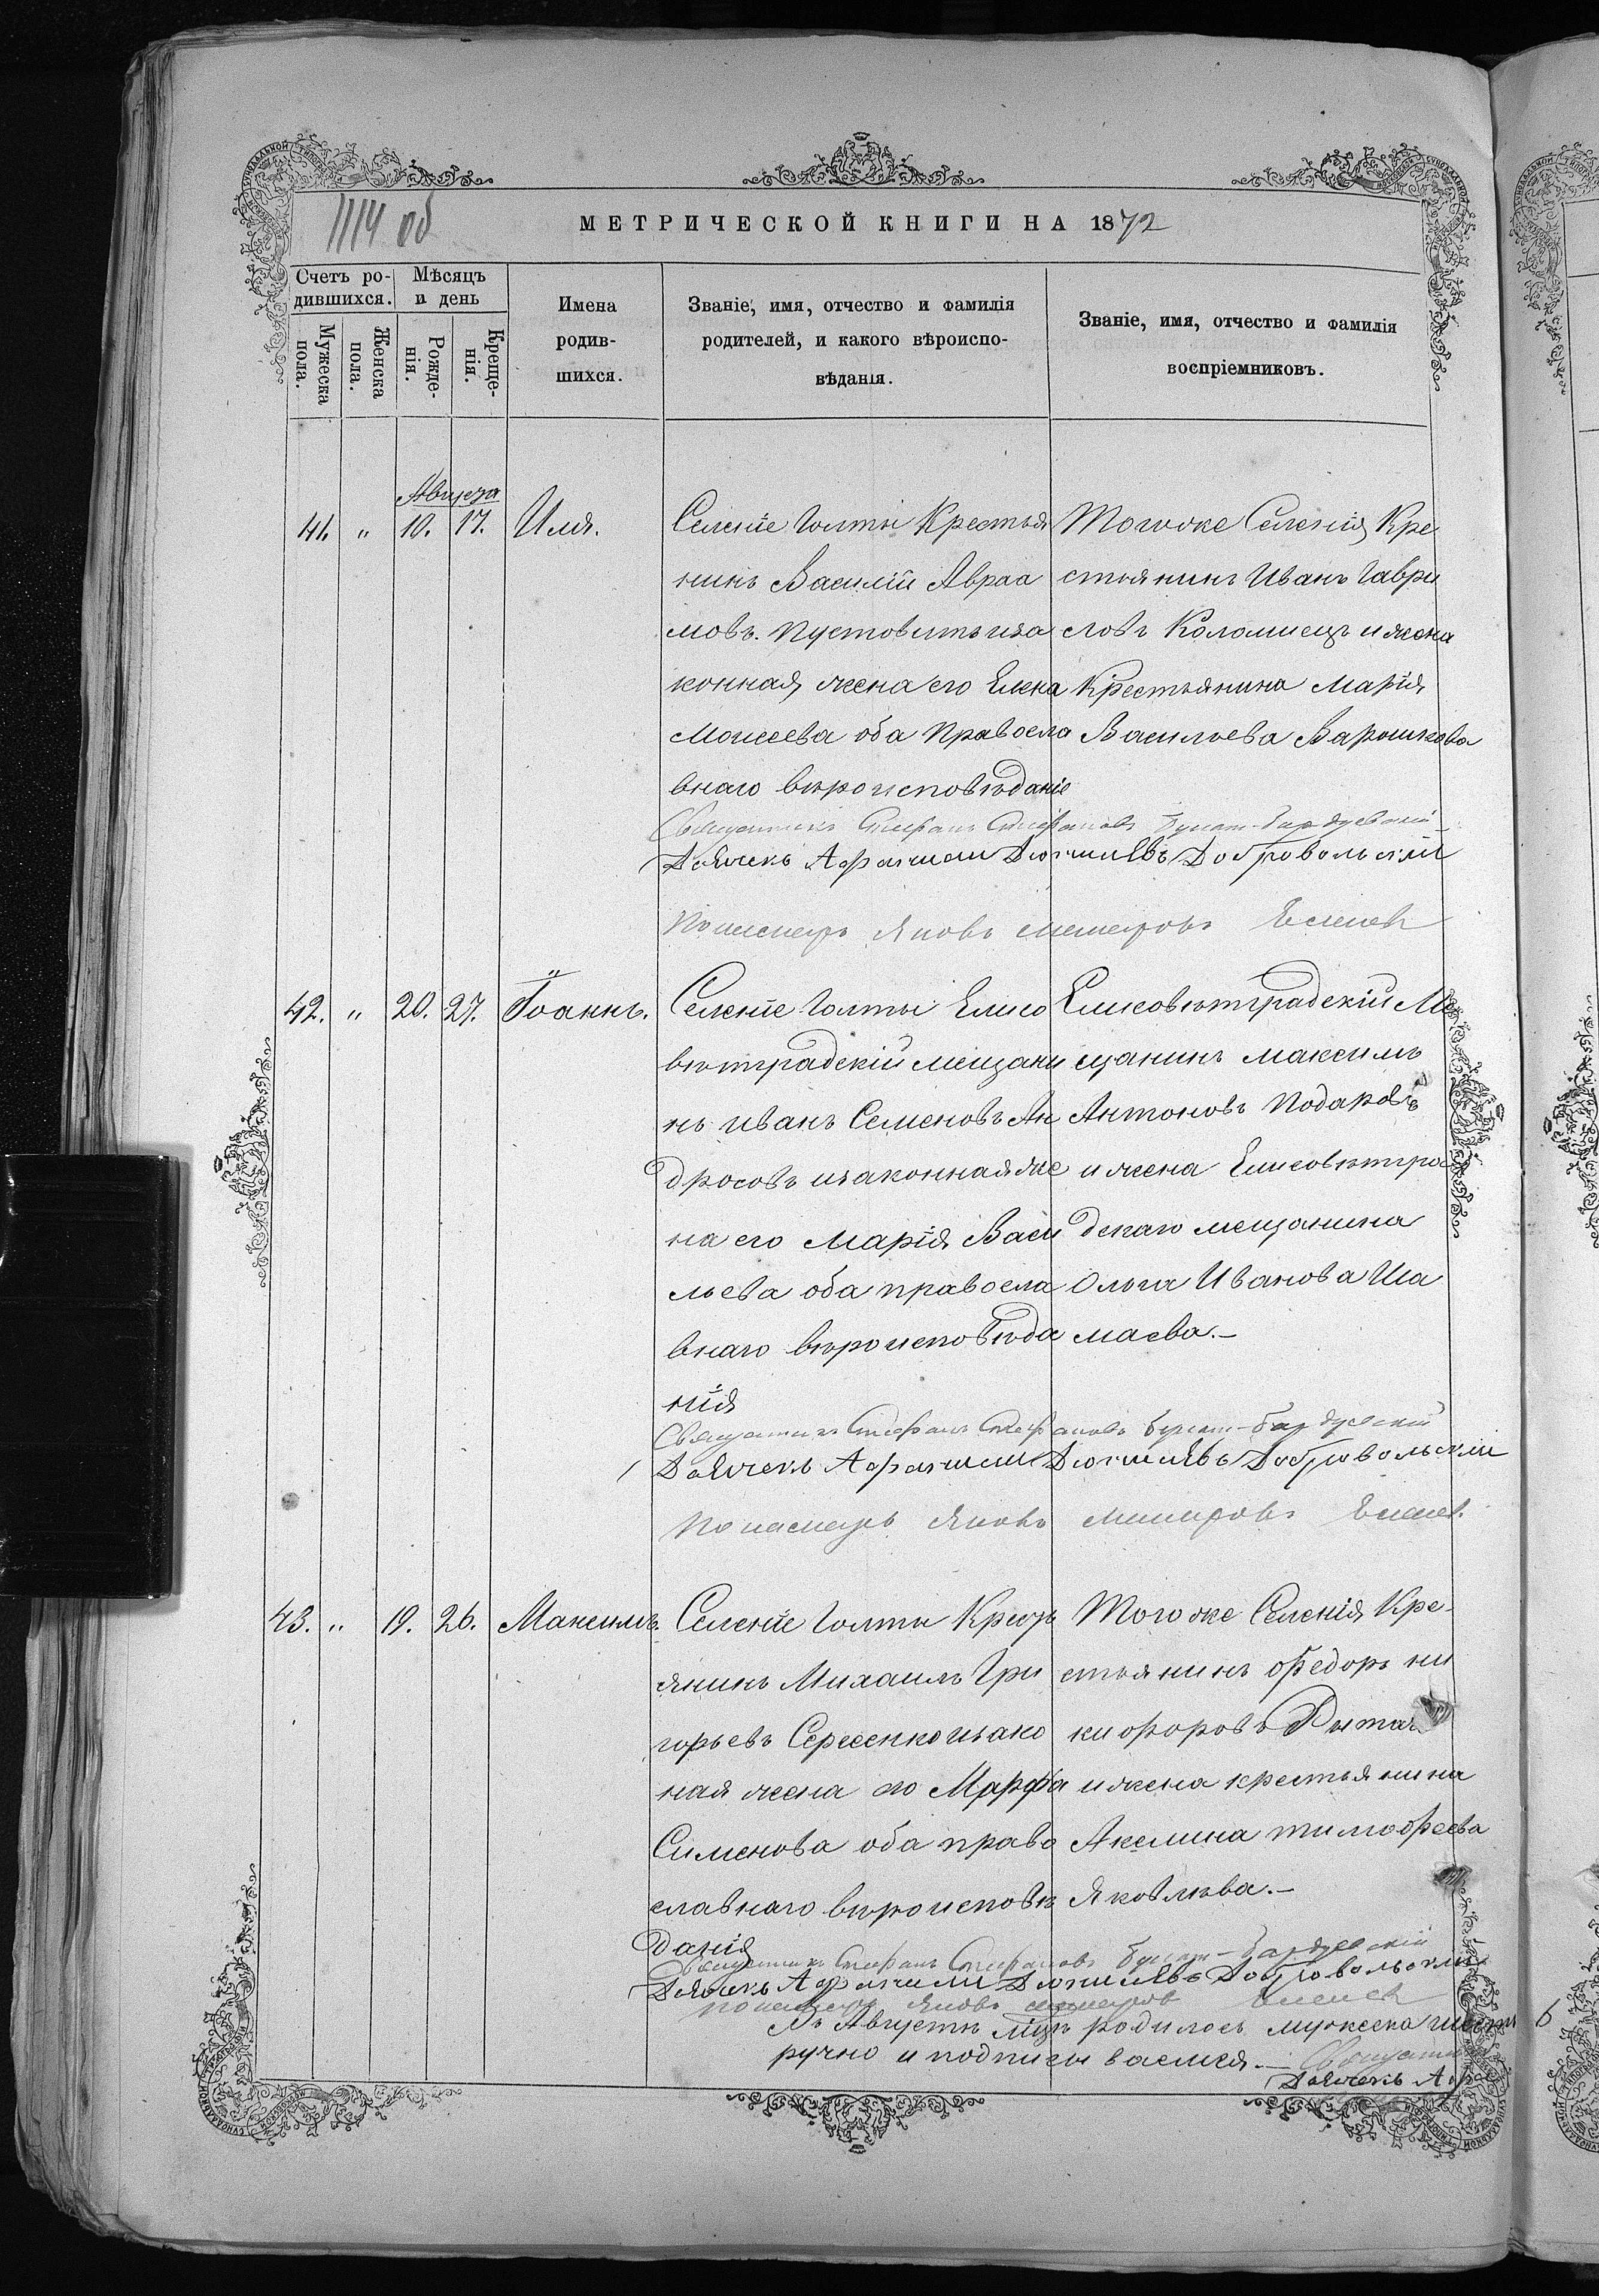 1114 об
МЕТРИЧЕСКОЙ КНИГИ НА 1872
Счетъ ро-
дившихся.
Мѣсяцъ
и день
Мужеска
пола.
Женска
пола.
Рожде-
нія.
Креще-
нія.
Имена
родив-
шихся.
Званіе, имя, отчество и фамилія
родителей, и какого вѣроиспо-
вѣданія.
Званіе, имя, отчество и фамилія
воспріемниковъ.
Августа
41. " 10. 17. Илія.
Селеніе Голты Крестья
нинъ Василій Авраа
мовъ. Пустовитъ иза
конная жена его Елена
Моисеева оба Правосла
внаго вѣроисповѣданіе
Тогоже Селенія Кре
стьянинъ Иванъ Гаври
ловъ Коломиецъ и жена
Крестьянина Марія
Васильева
Священникъ Стефанъ Стефановъ
Дьячекъ Добровольскій
Пономарь Яковъ
42. " 20. 27. Іоаннъ.
Селеніе Голты Елисо
ветградскій мещани
нъ иванъ Семеновъ Ан
дросовъ изаконная же
на его Марія Васи
льева оба правосла
внаго вѣроисповѣда
нія
Елисоветградскій Ме
щанинъ максимъ
Антоновъ
и жена Елисоветгра
дскаго мещанина
Ольга Иванова Ша
маева.-
Священникъ Стефанъ Стефановъ
Дьячекъ Добровольскій
Пономарь Яковъ
43. " 19. 26. Максимъ.
Селеніе Голты Крестья
янинъ Михаилъ Гри
горьевъ изако
ная жена его Марфа
Сименова оба право
славнаго вѣроисповѣ
данія
Тогоже Селенія Кре-
стьянинъ Федоръ ни
кифоровъ
и жена крестьянина
Акелина тимофеева
Яковлева.-
Священникъ Стефанъ Стефановъ
Дьячекъ Добровольскій
пономарь Яковъ
Въ Августѣ мцѣ родилось мужеска
ручно и подписываемся.-
Дьячекъ